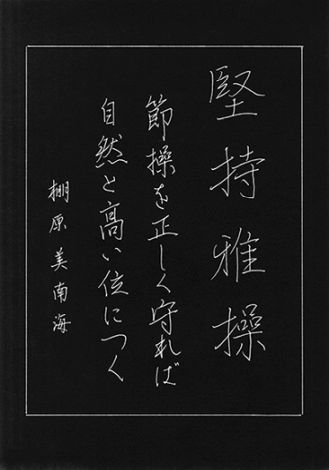 堅持雅操
節操を正しく守れば
自然と高い位につく
棚原美南海